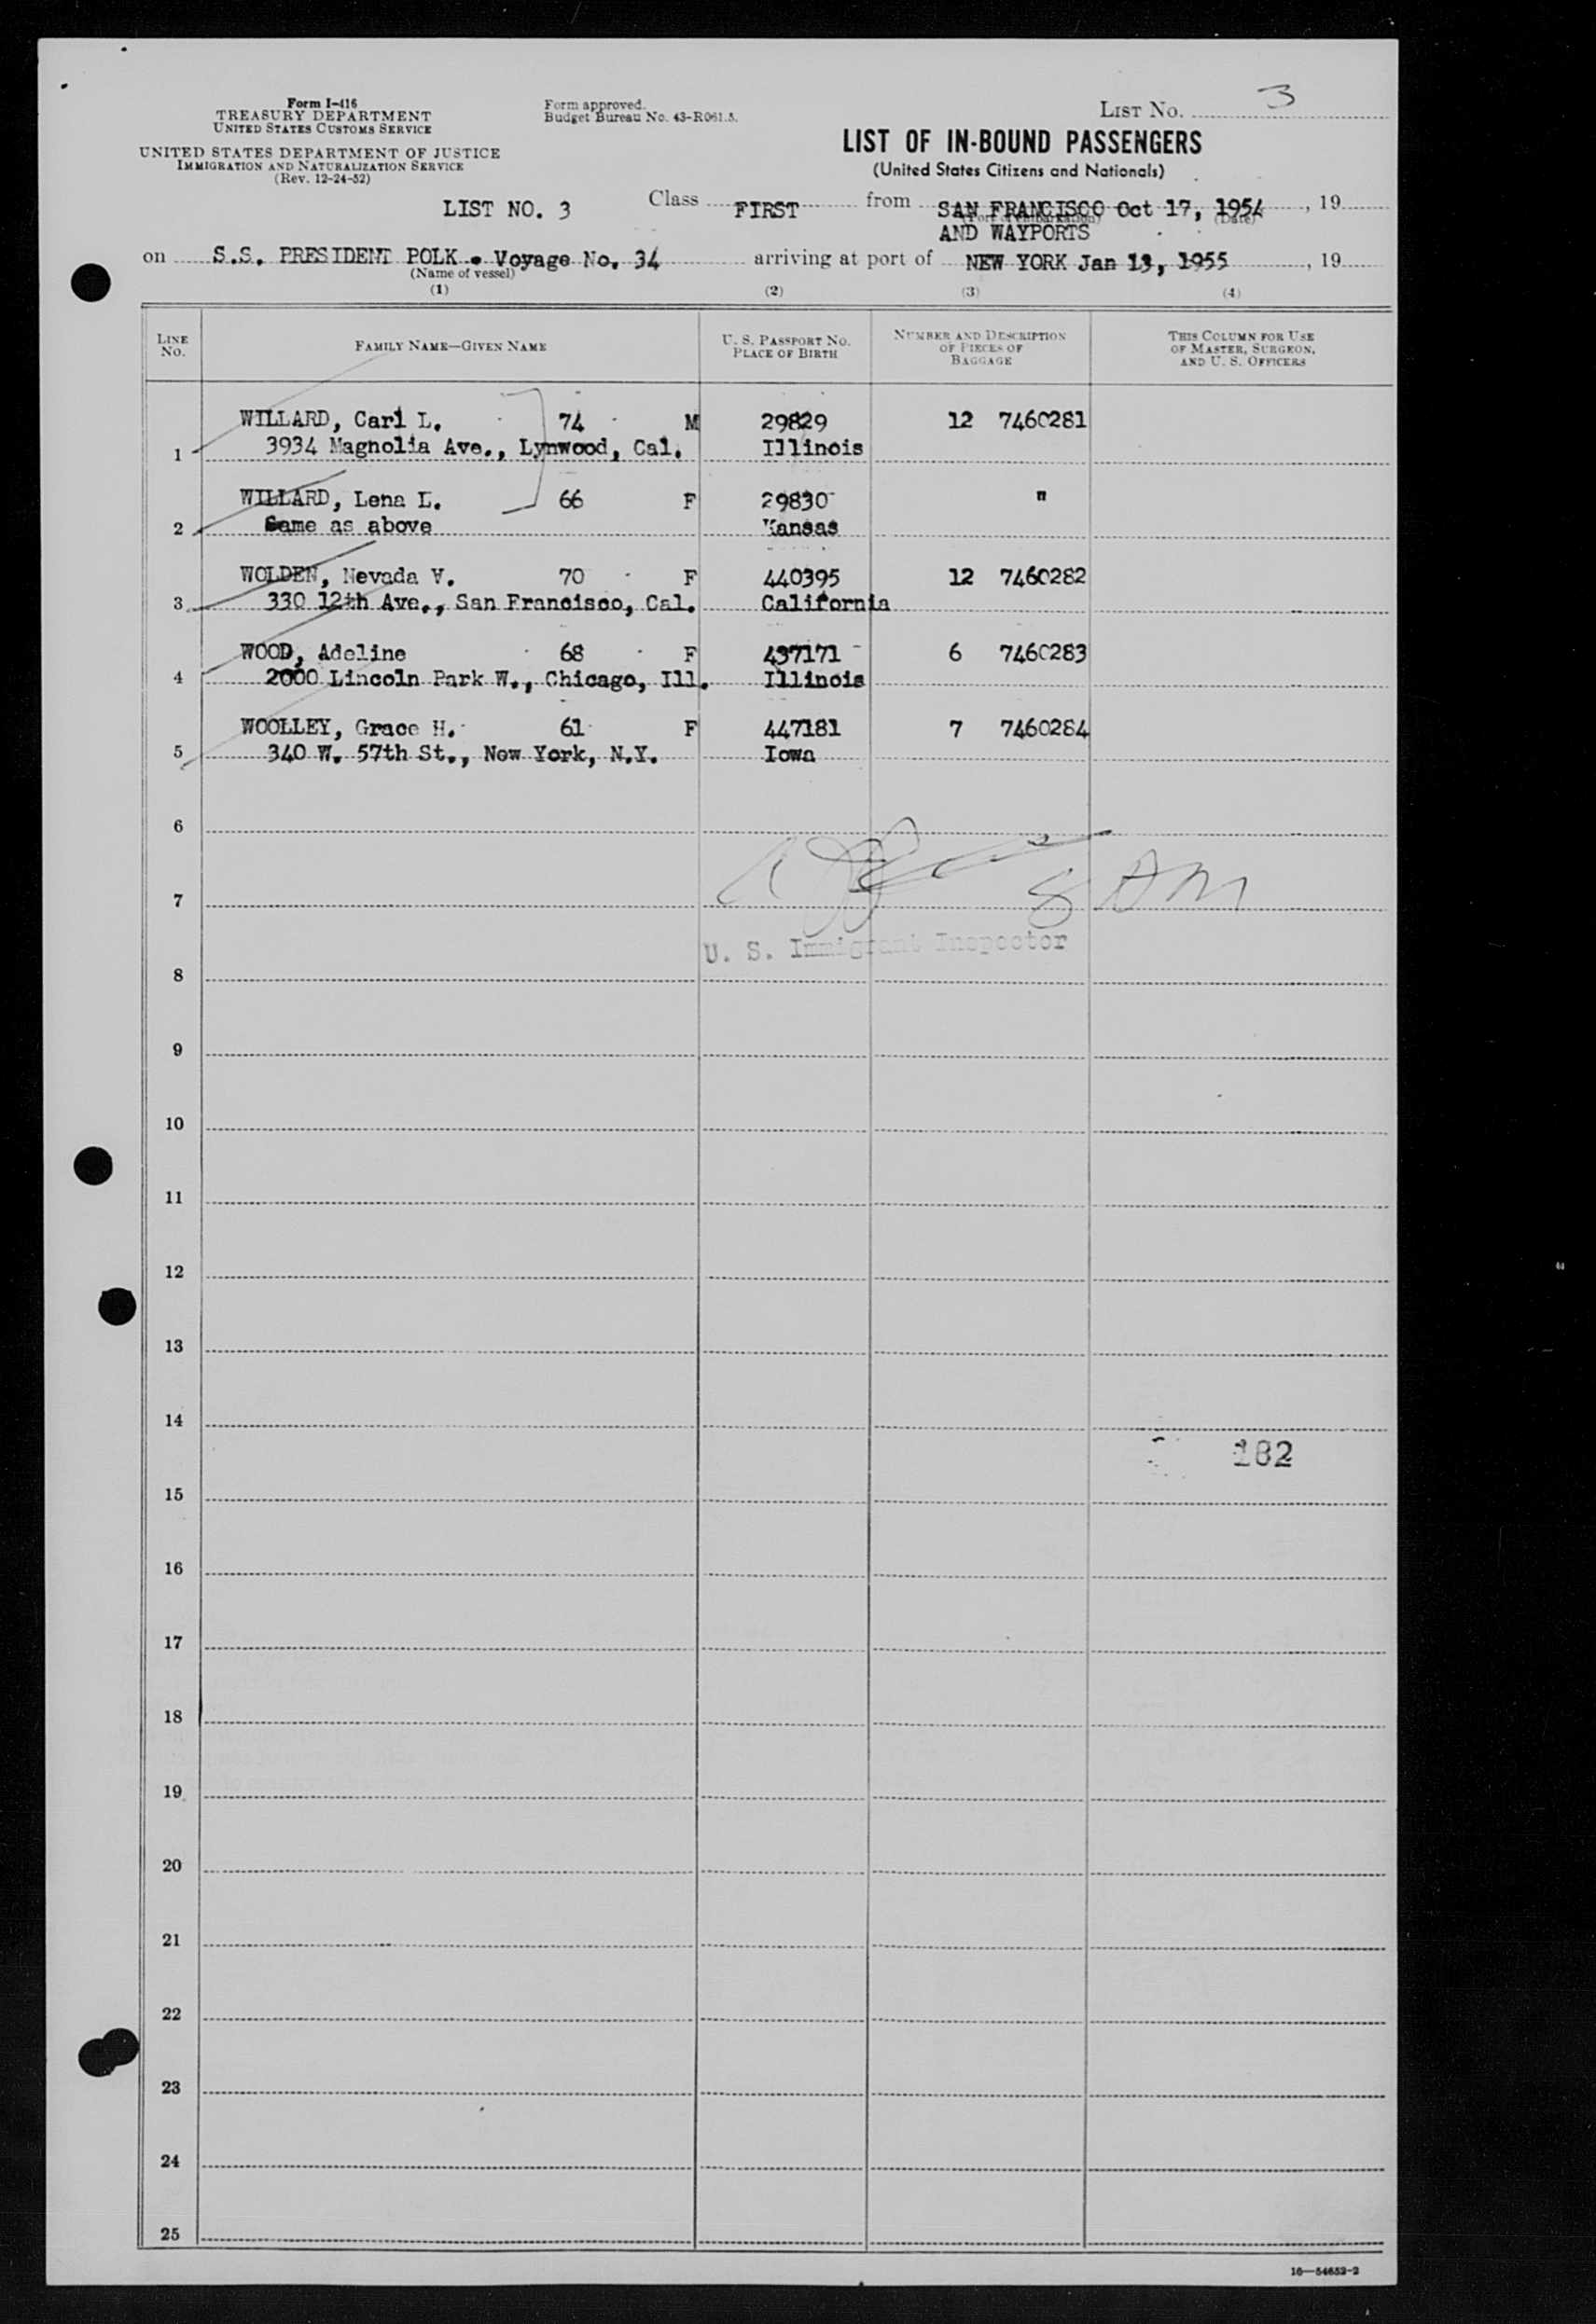 Form I-416
TREASURY DEPARTMENT
UNITED STATES CUSTOMS SERVICE
UNITED STATES DEPARTMENT OF JUSTICE
IMMIGRATION AND NATURALIZATION SERVICE
(Rev. 12-24-52)
Form approved.
Budget Bureau No. 43-R061.5.
LIST No. 3
LIST OF IN-BOUND PASSENGERS
(United States Citizens and Nationals)
LIST NO. 3 Class FIRST from SAN FRANCISCO Oct 17, 1954, 19
(Port of embarkation) (Date)
AND WAYPORTS
on S.S. PRESIDENT POLK • Voyage No. 34 arriving at port of NEW YORK Jan 13, 1955, 19
(Name of vessel)
(1) (2) (3) (4)
LINE No. FAMILY NAME—GIVEN NAME U. S. PASSPORT NO. PLACE OF BIRTH NUMBER AND DESCRIPTION OF PIECES OF BAGGAGE THIS COLUMN FOR USE OF MASTER, SURGEON, AND U. S. OFFICERS
WILLARD, Carl L. 74 M 29829 12 7460281
1 3934 Magnolia Ave., Lynwood, Cal. Illinois
WILLARD, Lena L. 66 F 29830 "
2 Same as above Kansas
WOLDEN, Nevada V. 70 F 440395 12 7460282
3 330 12th Ave., San Francisco, Cal. California
WOOD, Adeline 68 F 437171 6 7460283
4 2000 Lincoln Park W., Chicago, Ill. Illinois
WOOLLEY, Grace H. 61 F 447181 7 7460284
5 340 W. 57th St., New York, N.Y. Iowa
6
7 8 AM
U. S. Immigrant Inspector
8
9
10
11
12
13
14
182
15
16
17
18
19
20
21
22
23
24
25
16—54652-2